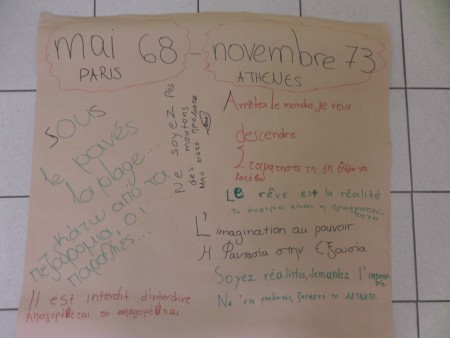 mai 68 - novembre 73
PARIS
ATHENES
SOUS
le pavés
la plage...
κάτω από τα
πεζοδρόμια, οι
παραλίες...
Ne soyez pas
des moutons
Μην είστε πρόβατα
Il est interdit d'interdire
Απαγορεύεται το απαγορεύεται
Arrêtez le monde, je veux
descendre
Σταματήστε τη γη θέλω να
κατέβω
Le rêve est la réalité
Το όνειρο είναι η πραγματικότητα
L'imagination au pouvoir
Η Φαντασία στην Εξουσία
Soyez réalists, demandez l'impossible
Να 'στε ρεαλιστές, ζητήστε το ΑΔΥΝΑΤΟ